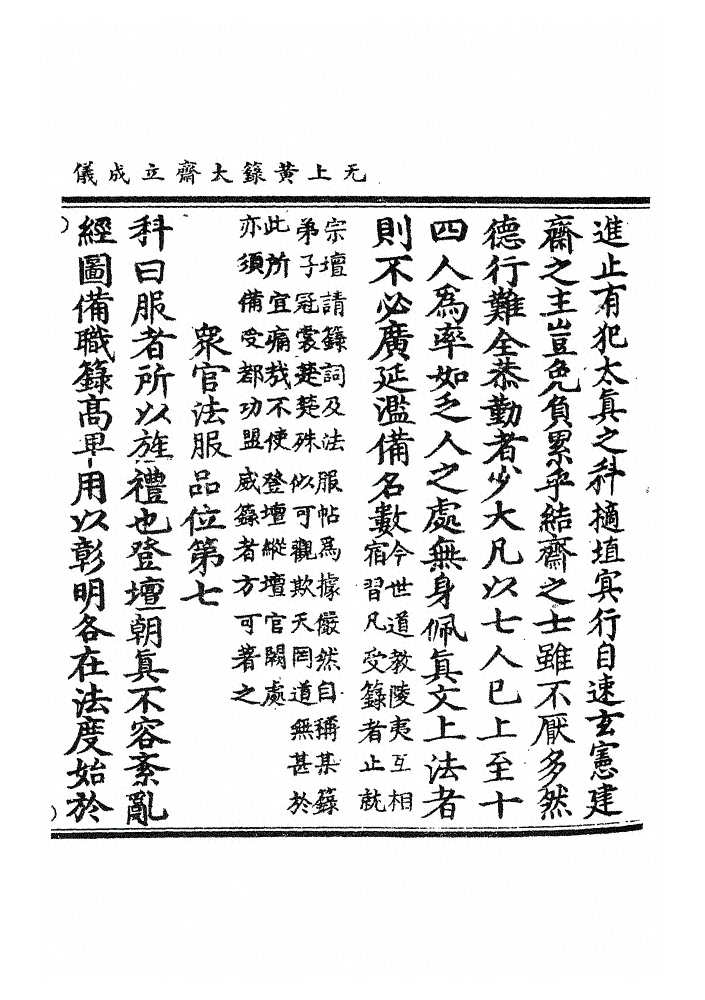 无上黃籙大齋立成儀
進止有犯太真之科擿埴冥行自速玄憲建
齋之主豈免負累乎結齋之士雖不厭多然
德行難全恭勤者少大凡以七人已上至十
四人為率如乏人之處無身佩真文上法者
則不必廣延濫備名數今世道教陵夷互相
宿習凡受籙者止就
宗壇請籙詞及法服帖為據儼然自稱某籙
弟子冠裳楚楚殊似可觀欺天罔道無甚於
此所宜痛㦲不使登壇縱壇官闕處
亦須備受都功盟威籙者方可著之
衆官法服品位第七
科曰服者所以旌禮也登壇朝真不容紊亂
經圖備職籙高卑用以彰明各在法度始於